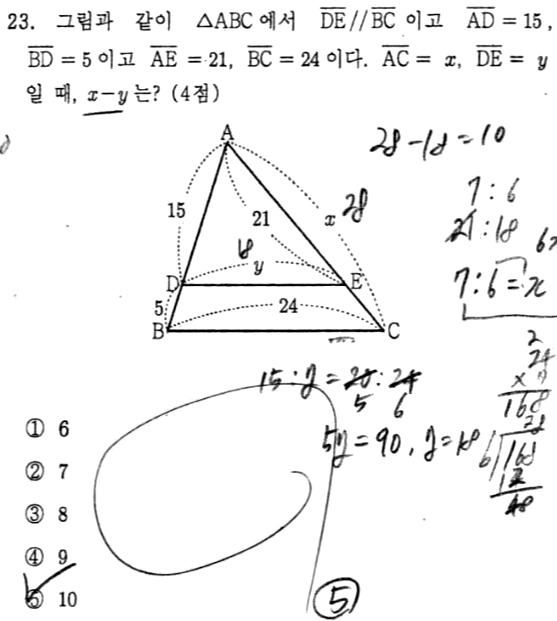 23. 그림과 같이 △ABC에서 DE//BC 이고 AD = 15,
BD = 5이고 AE = 21, BC = 24이다. AC = x, DE = y
일 때, x-y는? (4점)
28-18=10
A
7:6
15
21
x 28
21:18
18
y
D
E
7:6=x
5
24
B
C
24
168
15:y=20:24
5 6
28
① 6
5y=90, y=18
6 168
12
48
② 7
③ 8
④ 9
⑤ 10
⑤